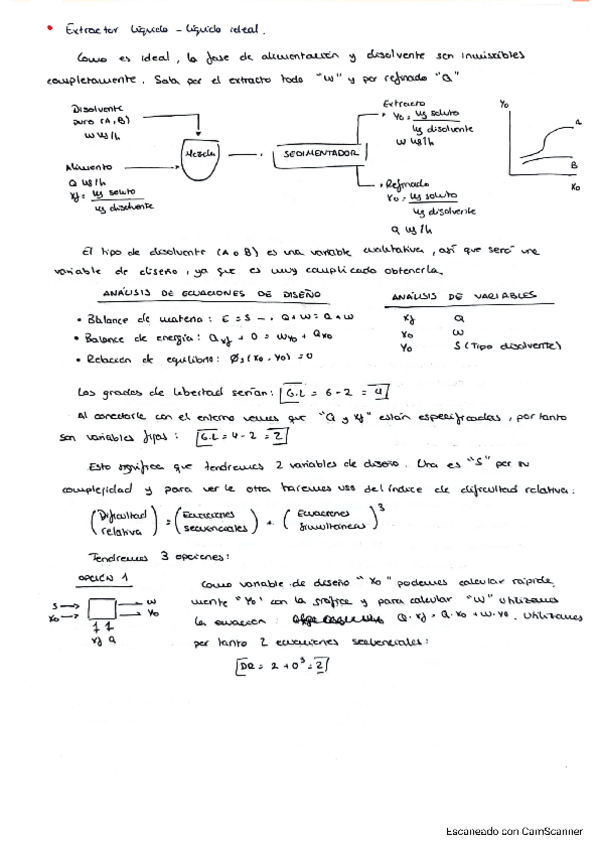 • Extractor líquido - líquido ideal.
Como es ideal, la fase de alimentación y disolvente son inmiscibles
completamente. Sale por el extracto todo "W" y por refinado "Q"
Disolvente
puro (A, B)
W kg/h
Mezcla
SEDIMENTADOR
Extracto
Yo = kg soluto
kg disolvente
W kg/h
Yo
A
B
Xo
Alimento
Q kg/h
Xf = kg soluto
kg disolvente
Refinado
Xo = kg soluto
kg disolvente
Q kg/h
El tipo de disolvente (A o B) es una variable cualitativa, así que será una
variable de diseño, ya que es muy complicado obtenerla.
ANÁLISIS DE ECUACIONES DE DISEÑO
ANÁLISIS DE VARIABLES
• Balance de materia: E = S → Q + W = Q + W
Xf Q
• Balance de energía: Q Xf + 0 = W Yo + Q Xo
Xo W
• Relación de equilibrio: Øs (Xo, Yo) = 0
Yo S (Tipo disolvente)
Los grados de libertad serían: G.L = 6 - 2 = 4
Al conectarle con el entorno vemos que "Q y Xf" están especificadas, por tanto
son variables fijas: G.L = 4 - 2 = 2
Esto significa que tendremos 2 variables de diseño. Una es "S" por su
complejidad y para ver la otra haremos uso del índice de dificultad relativa:
(Dificultad relativa) = (Ecuaciones secuenciales) + (Ecuaciones simultáneas)³
Tendremos 3 opciones:
OPCIÓN 1
S
Xo
W
Yo
Xf Q
Como variable de diseño "Xo" podemos calcular rápida
mente "Yo" con la gráfica y para calcular "W" utilizamos
la ecuación: Q · Xf = Q · Xo + W · Yo. Utilizamos
por tanto 2 ecuaciones secuenciales:
DR = 2 + 0³ = 2
Escaneado con CamScanner